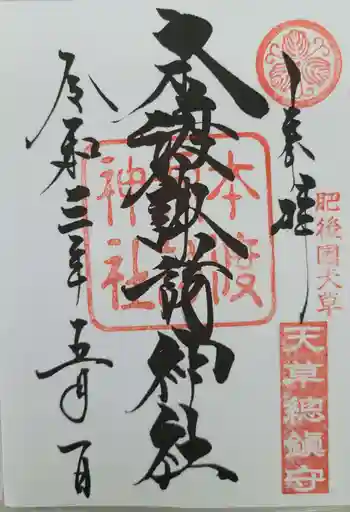 奉拝
肥後国天草
天草總鎮守
本渡諏訪神社
本渡
神社
令和三年五月一日